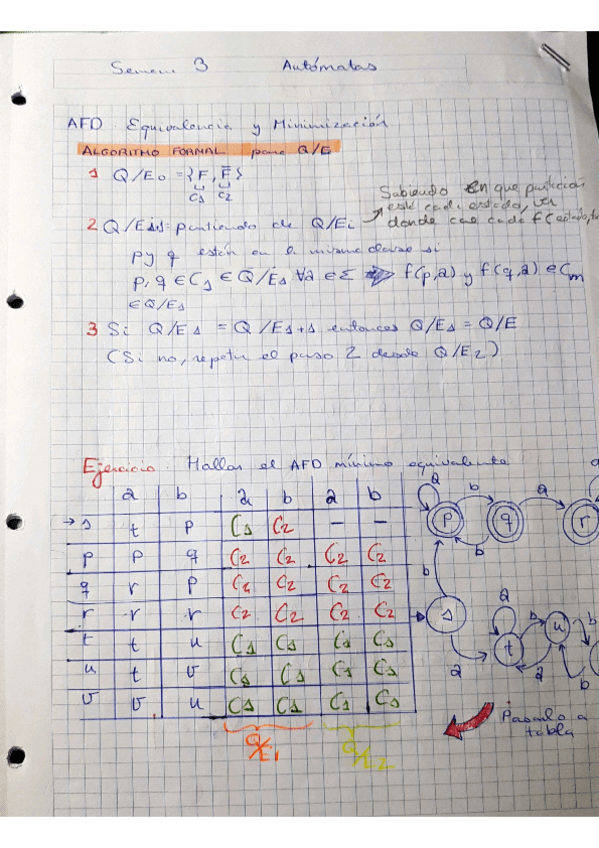 Semana 3 Autómatas
AFD: Equivalencia y Minimización
ALGORITMO FORMAL para Q/E
1 Q/E0 = {F, F̅}
C1 C2
Sabiendo en que partición
está cada estado, ver
donde cae cada f(estado,
2 Q/Ei+1: partiendo de Q/Ei
p y q están en la misma clase si
p, q ∈ C1 ∈ Q/E1 ∀a ∈ Σ ⇒ f(p,a) y f(q,a) ∈ Cm
∈ Q/E1
3 Si Q/E1 = Q/E1+1 entonces Q/E1 = Q/E
(Si no, repetir el paso 2 desde Q/E2)
Ejercicio: Hallar el AFD mínimo equivalente
a b a b a b
→ s t p C1 C2 – –
p p q C2 C2 C2 C2
q r p C2 C2 C2 C2
r r r C2 C2 C2 C2
t t u C1 C1 C1 C1
u t v C1 C1 C1 C1
v v u C1 C1 C1 C1
Q/E1 Q/E2
a b a
p q r
b b
s a b u b
t a
a
Pasarlo a
tabla